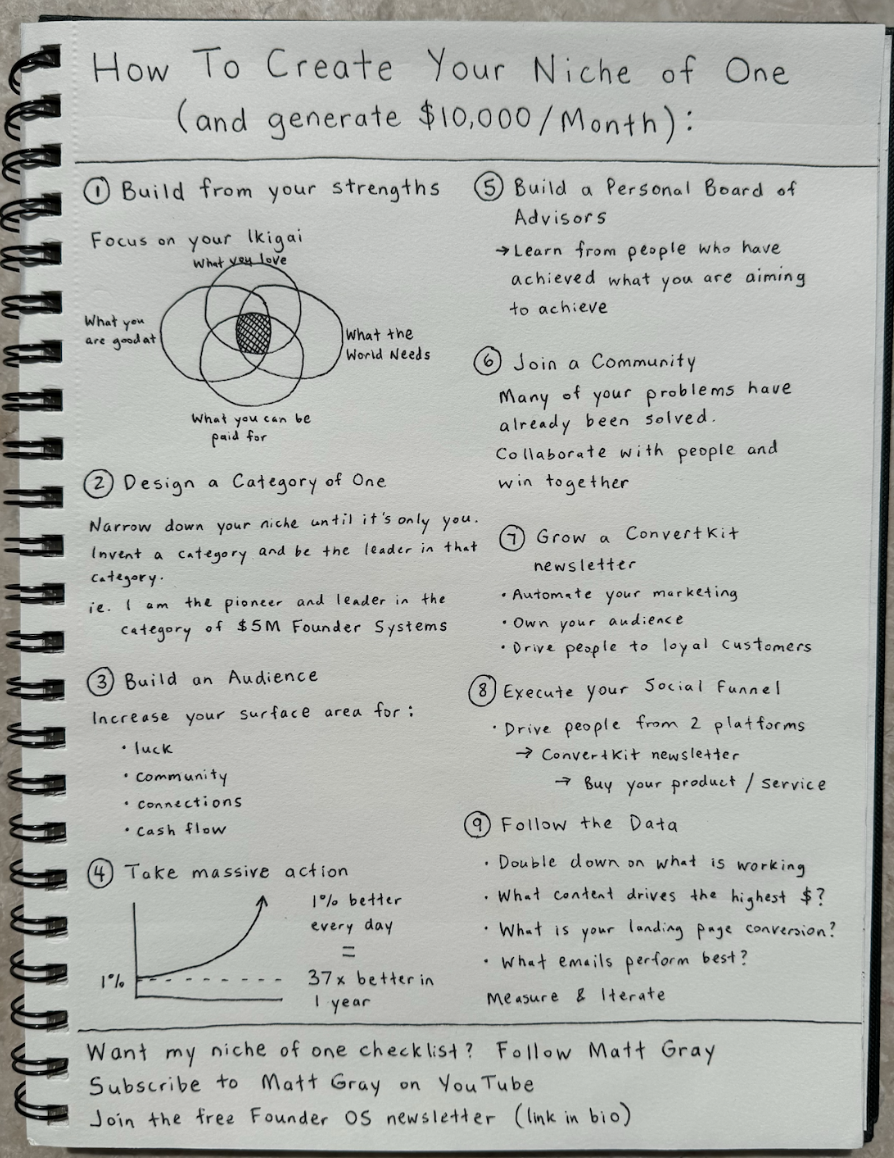 How To Create Your Niche of One
(and generate $10,000/Month):
① Build from your strengths
Focus on your Ikigai
What you love
What you
are good at
What the
World Needs
What you can be
paid for
② Design a Category of One
Narrow down your niche until it's only you.
Invent a category and be the leader in that
category.
ie. I am the pioneer and leader in the
category of $5M Founder Systems
③ Build an Audience
Increase your surface area for:
• luck
• community
• connections
• cash flow
④ Take massive action
1%
1% better
every day
=
37x better in
1 year
⑤ Build a Personal Board of
Advisors
→ Learn from people who have
achieved what you are aiming
to achieve
⑥ Join a Community
Many of your problems have
already been solved.
Collaborate with people and
win together
⑦ Grow a ConvertKit
newsletter
• Automate your marketing
• Own your audience
• Drive people to loyal customers
⑧ Execute your Social Funnel
• Drive people from 2 platforms
→ ConvertKit newsletter
→ Buy your product / service
⑨ Follow the Data
• Double down on what is working
• What content drives the highest $?
• What is your landing page conversion?
• What emails perform best?
Measure & Iterate
Want my niche of one checklist? Follow Matt Gray
Subscribe to Matt Gray on YouTube
Join the free Founder OS newsletter (link in bio)